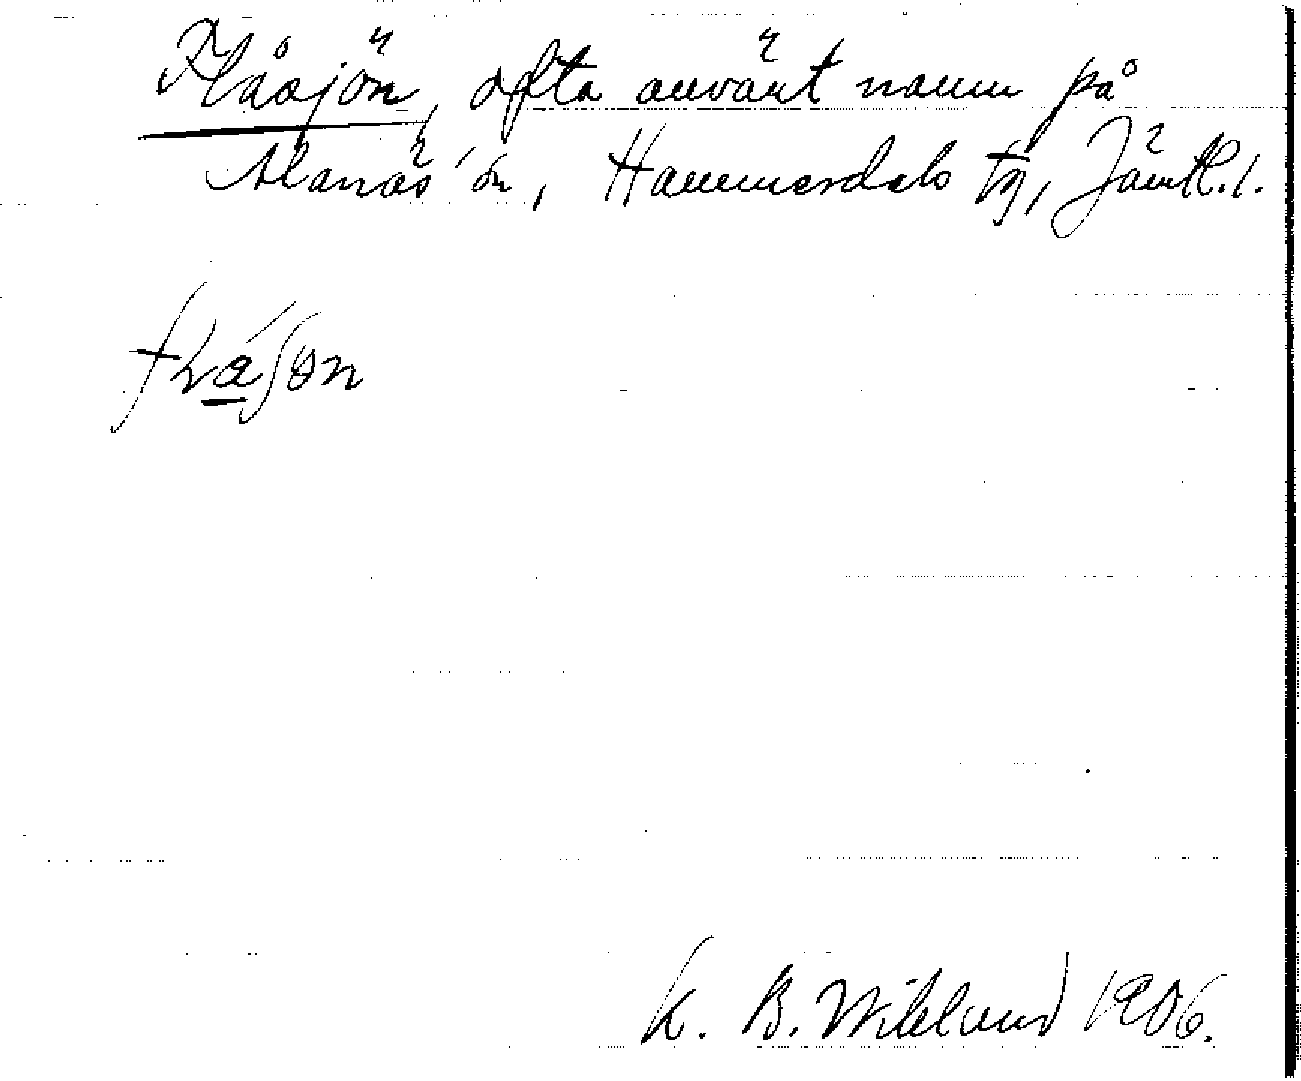 Flåsjön, ofta använt namn på
Alanäs'ön, Hammerdals tg, Jämtl. l.
K. B. Wiklund 1906.